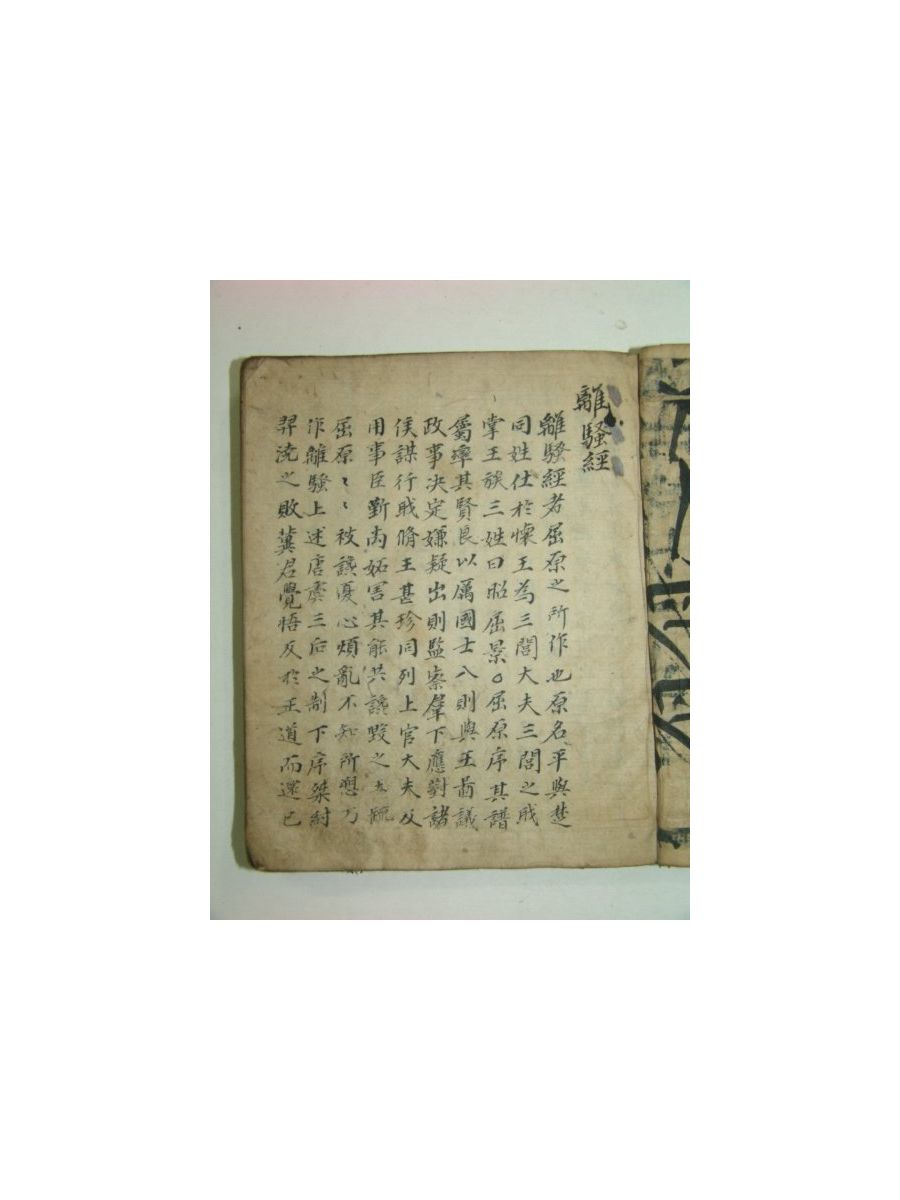 離騷經
離騷經者屈原之所作也原名平與楚
同姓仕於懷王為三閭大夫三閭之戝
掌王族三姓曰昭屈景○屈原序其譜
屬率其賢良以厲國士入則與王啚議
政事决定嫌疑出則監察羣下應對諸
侯謀行戝脩王甚珍同列上官大夫及
用事臣靳尚妬害其能共譖毁之王疏
屈原〻〻被讒憂心煩亂不知所愬乃
作離騷上述唐虞三后之制下序桀紂
羿澆之敗冀君覺悟反於正道而還已